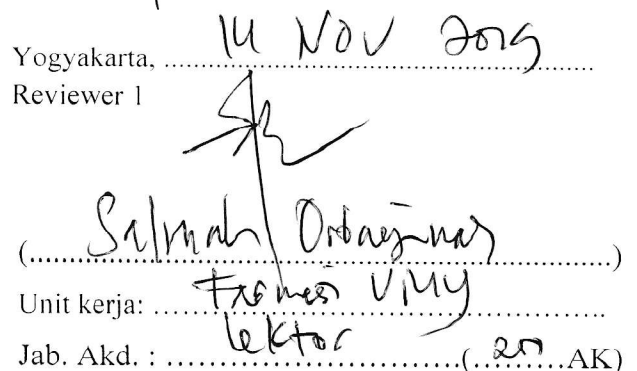 Yogyakarta, 14 NOV 2019
Reviewer 1
(Salmah Orbayinah)
Unit kerja: Farmasi UMY
Jab. Akd. : lektor (200 AK)